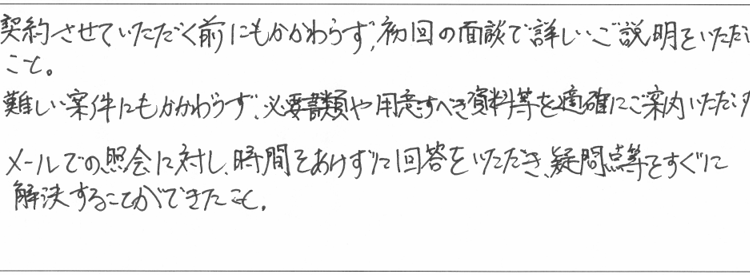 契約させていただく前にもかかわらず、初回の面談で詳しいご説明をいただい
こと。
難しい案件にもかかわらず、必要書類や用意すべき資料等を適確にご案内いただけ
メールでの照会に対し、時間をあけずに回答をいただき、疑問点等をすぐに
解決することができたこと。